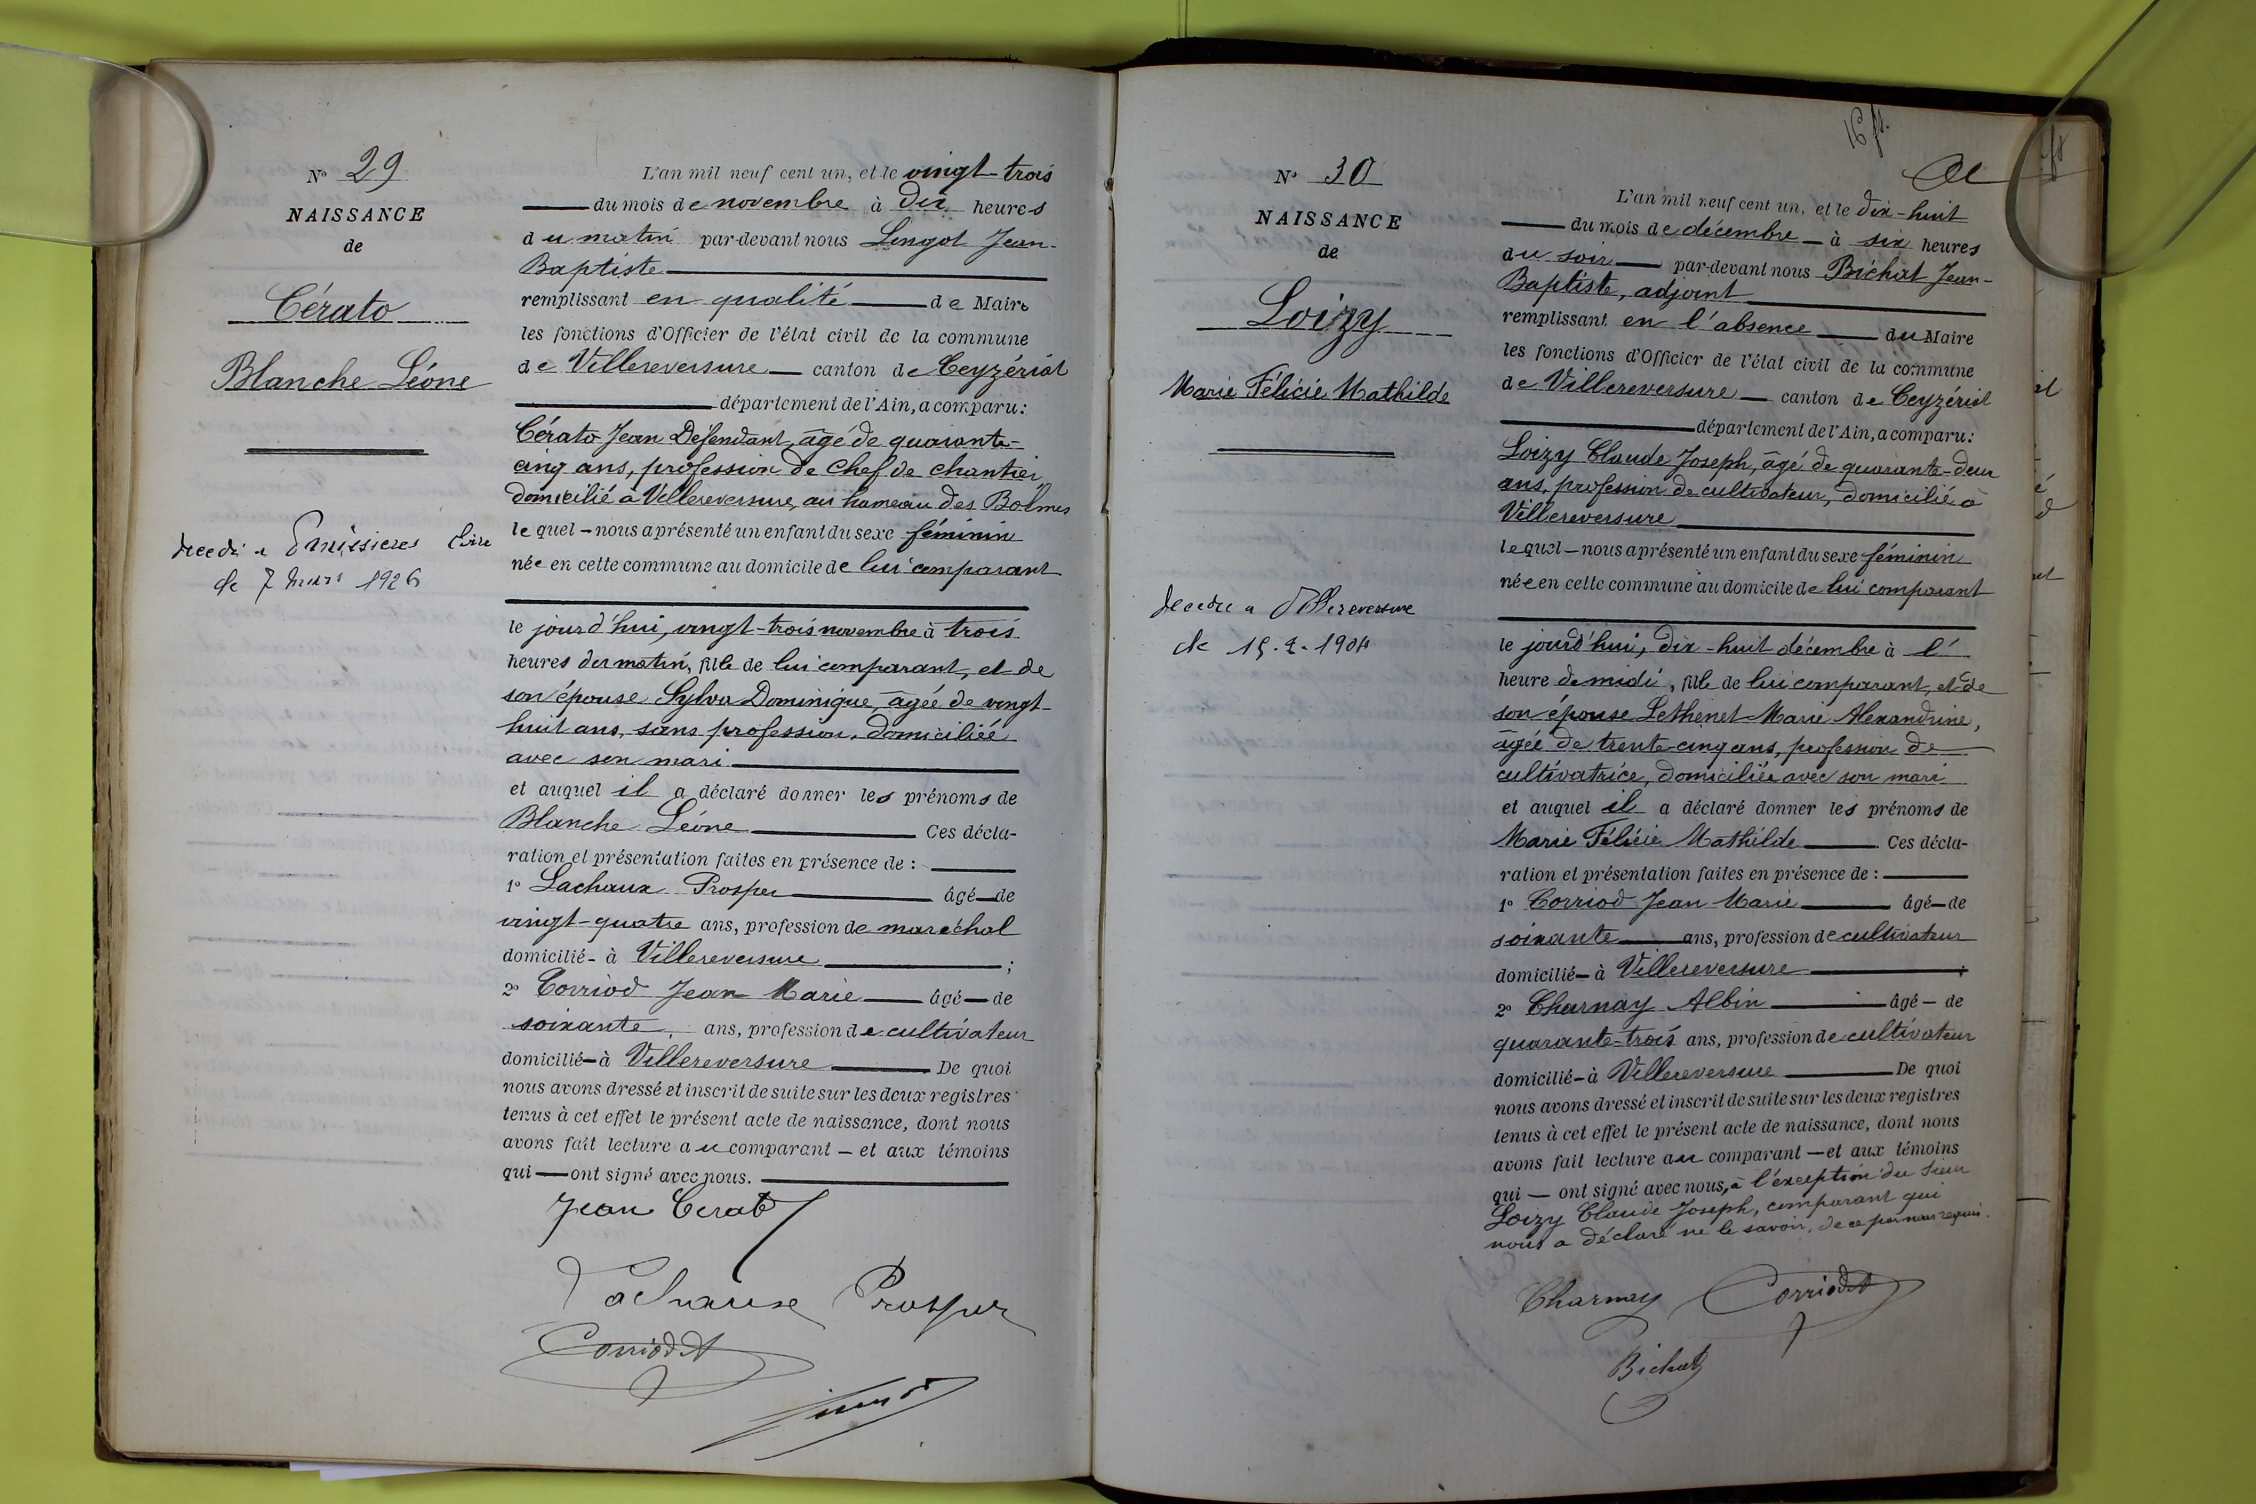 N° 29
NAISSANCE
de
Cérato
Blanche Léone
de 7 mars 1926
L'an mil neuf cent un, et le vingt-trois
du mois de novembre à dix heures
du matin par-devant nous Lingot Jean-
Baptiste
remplissant en qualité de Maire
les fonctions d'Officier de l'état civil de la commune
de Villereversure canton de Ceyzériat
département de l'Ain, a comparu:
Cérato Jean Défendant, âgé de quarante-
cinq ans, profession de chef de chantier,
domicilié à Villereversure, au hameau des Bolmes
lequel nous a présenté un enfant du sexe féminin
née en cette commune au domicile de lui comparant
le jourd'hui, vingt-trois novembre à trois
heures du matin, fille de lui comparant, et de
son épouse Sylva Dominique, âgée de vingt-
huit ans, sans profession, domiciliée
avec son mari
et auquel il a déclaré donner les prénoms de
Blanche Léone Ces décla-
ration et présentation faites en présence de :
1° Lachaux Prosper âgé de
vingt-quatre ans, profession de maréchal
domicilié à Villereversure ;
2° Corriod Jean Marie âgé de
soixante ans, profession de cultivateur
domicilié à Villereversure De quoi
nous avons dressé et inscrit de suite sur les deux registres
tenus à cet effet le présent acte de naissance, dont nous
avons fait lecture au comparant et aux témoins
qui ont signé avec nous.
Jean Cerato
Lachaux Prosper
Corriod
16 fs.
N° 30
NAISSANCE
de
Loizy
Marie Félicie Mathilde
décédée a Villereversure
de 15.2.1904
L'an mil neuf cent un, et le dix-huit
du mois de décembre à six heures
du soir par-devant nous Bichat Jean-
Baptiste, adjoint
remplissant en l'absence du Maire
les fonctions d'Officier de l'état civil de la commune
de Villereversure canton de Ceyzériat
département de l'Ain, a comparu:
Loizy Claude Joseph, âgé de quarante-deux
ans, profession de cultivateur, domicilié à
Villereversure
lequel nous a présenté un enfant du sexe féminin
née en cette commune au domicile de lui comparant
le jourd'hui, dix-huit décembre à l'
heure de midi, fille de lui comparant, et de
son épouse Lethenet Marie Alexandrine,
âgée de trente-cinq ans, profession de
cultivatrice, domiciliée avec son mari
et auquel il a déclaré donner les prénoms de
Marie Félicie Mathilde Ces décla-
ration et présentation faites en présence de :
1° Corriod Jean Marie âgé de
soixante ans, profession de cultivateur
domicilié à Villereversure ;
2° Charnay Albin âgé de
quarante-trois ans, profession de cultivateur
domicilié à Villereversure De quoi
nous avons dressé et inscrit de suite sur les deux registres
tenus à cet effet le présent acte de naissance, dont nous
avons fait lecture au comparant et aux témoins
qui ont signé avec nous, à l'exception du sieur
Loizy Claude Joseph, comparant qui
nous a déclaré ne le savoir, de ce par nous requis.
Charnay Corriod
Bichat